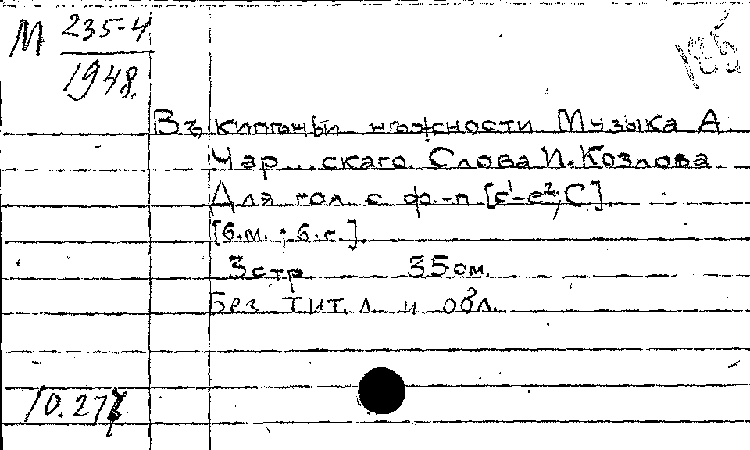 М 235-4
1948.
Въ нѣжности Музыка А.
Чар...скаго Слова И. Козлова
Для гол. с ф.-п [c¹-e², C]
[б.м.; б.г.].
3 стр 35 см.
Без тит. л. и обл.